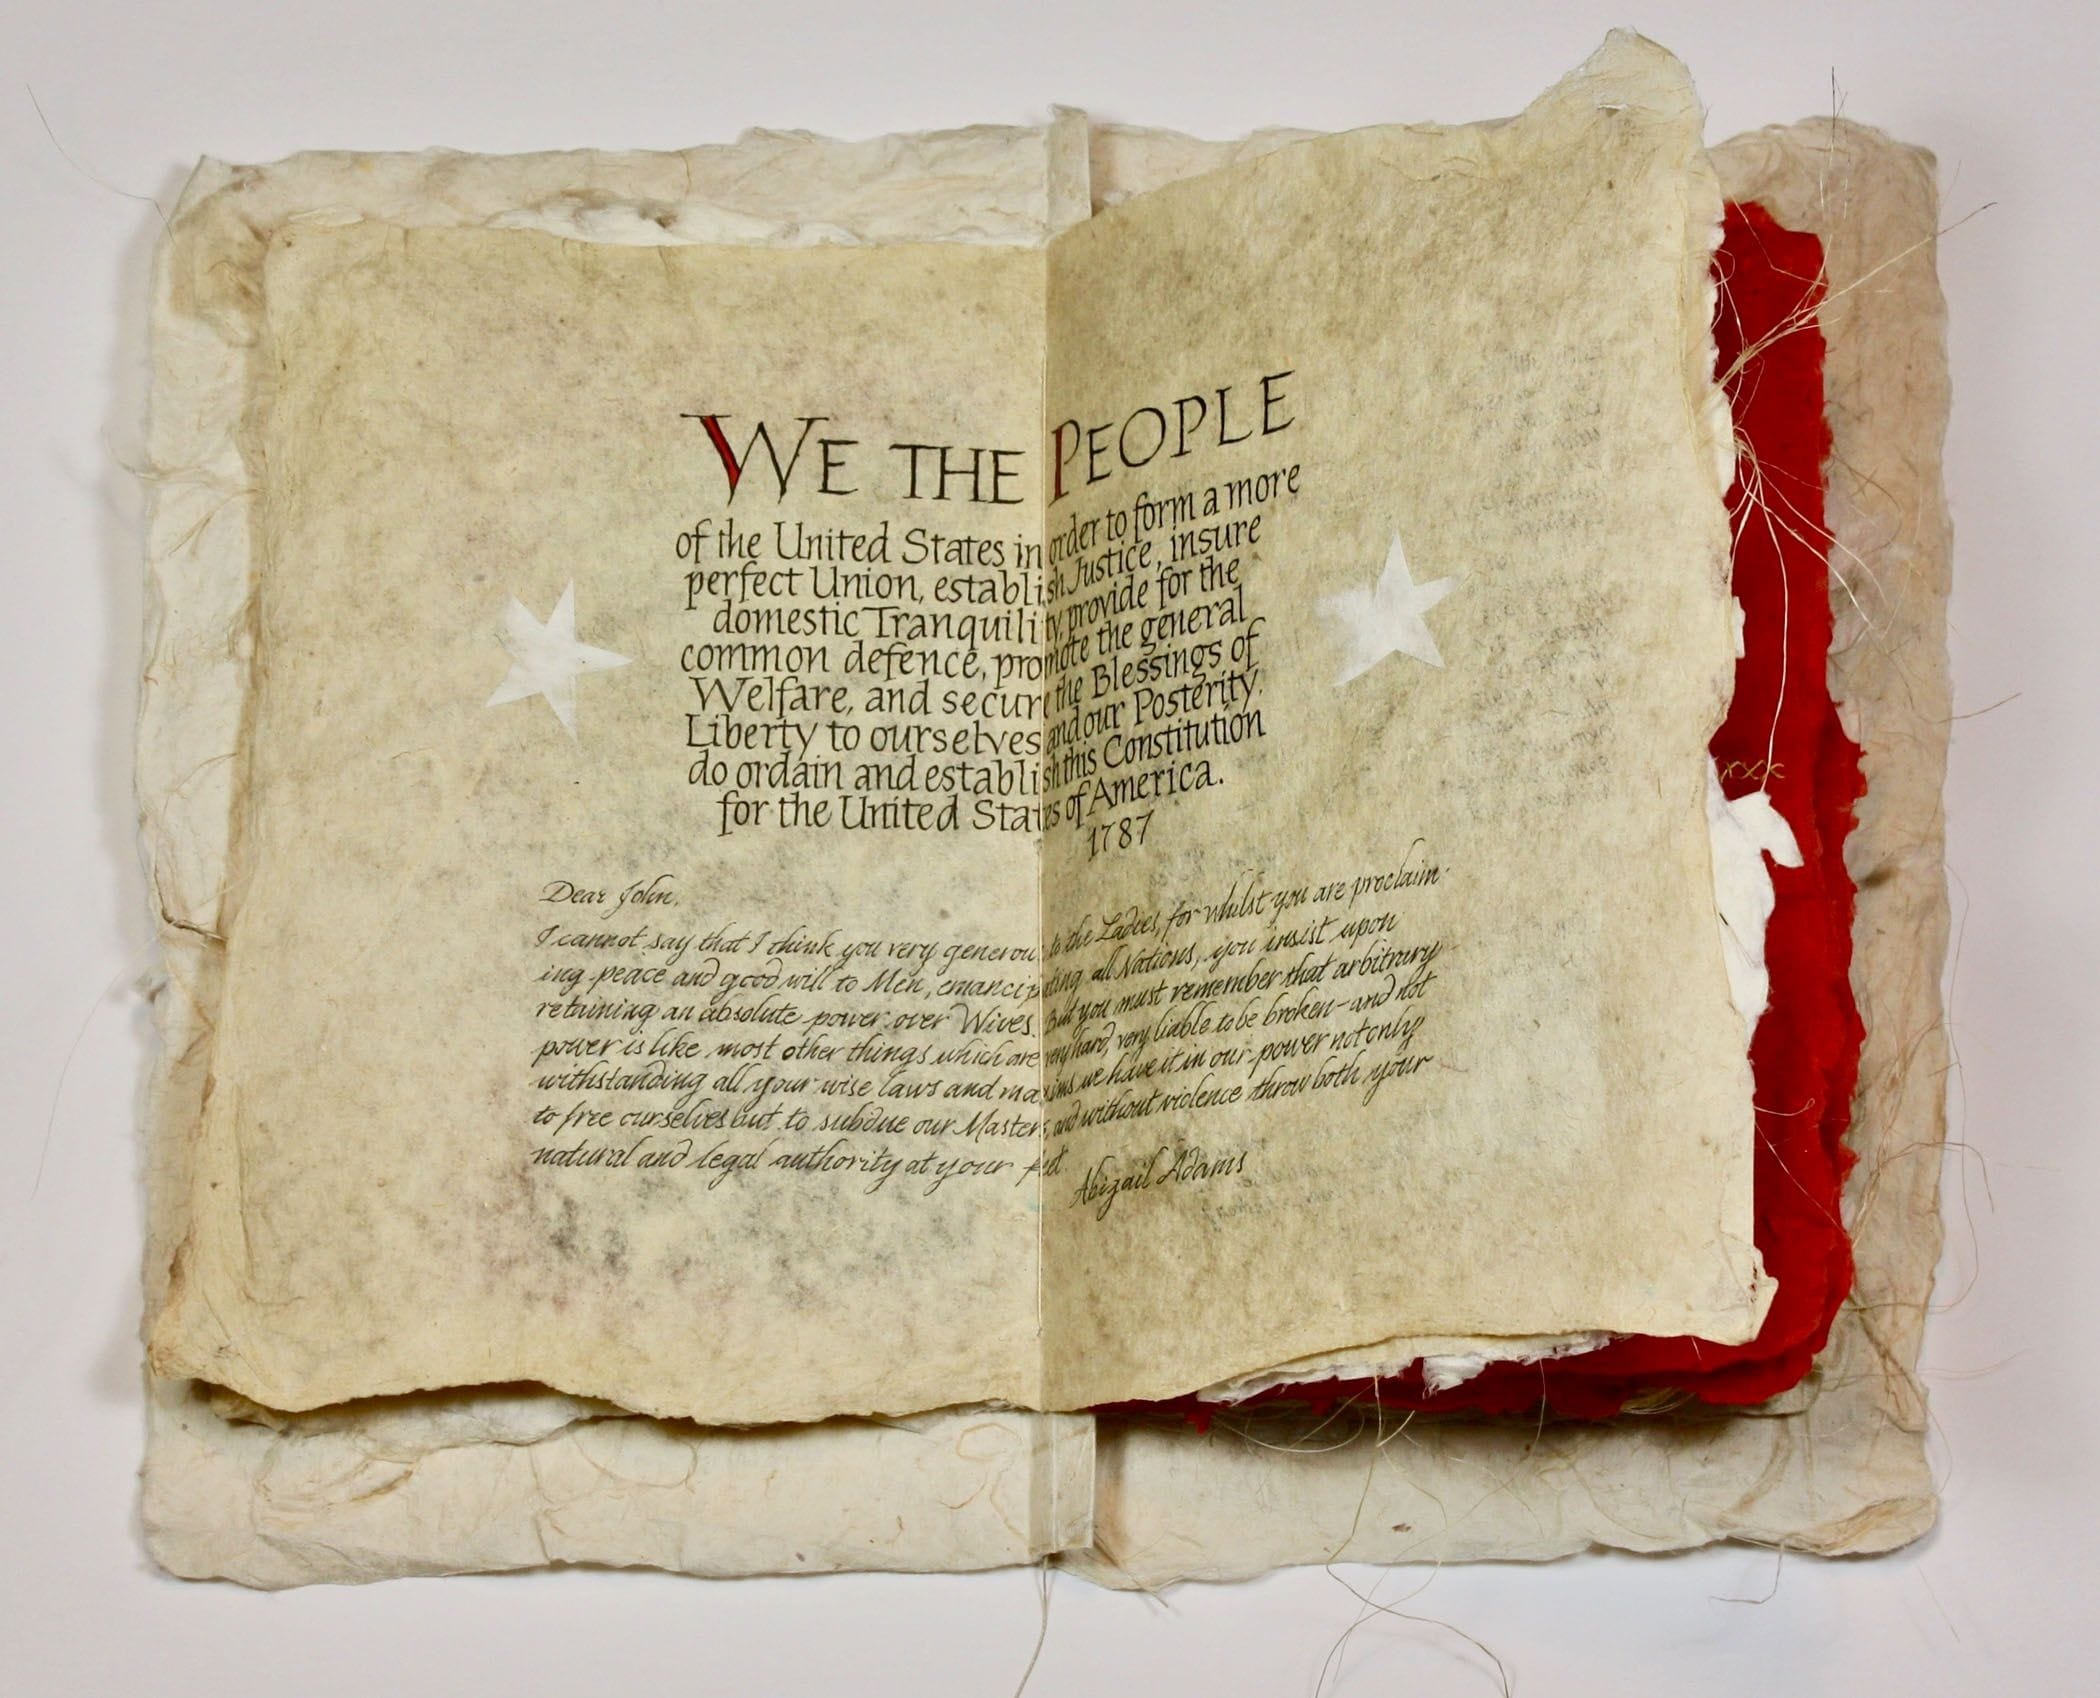 WE THE PEOPLE
of the United States in order to form a more
perfect Union, establish Justice, insure
domestic Tranquility, provide for the
common defence, promote the general
Welfare, and secure the Blessings of
Liberty to ourselves and our Posterity,
do ordain and establish this Constitution
for the United States of America.
1787
Dear John,
I cannot say that I think you very generous to the Ladies, for whilst you are proclaim-
ing peace and good will to Men, emancipating all Nations, you insist upon
retaining an absolute power over Wives. But you must remember that arbitrary
power is like most other things which are very hard, very liable to be broken – and not
withstanding all your wise laws and maxims we have it in our power not only
to free ourselves but to subdue our Masters, and without violence throw both your
natural and legal authority at your feet.
Abigail Adams
xxx